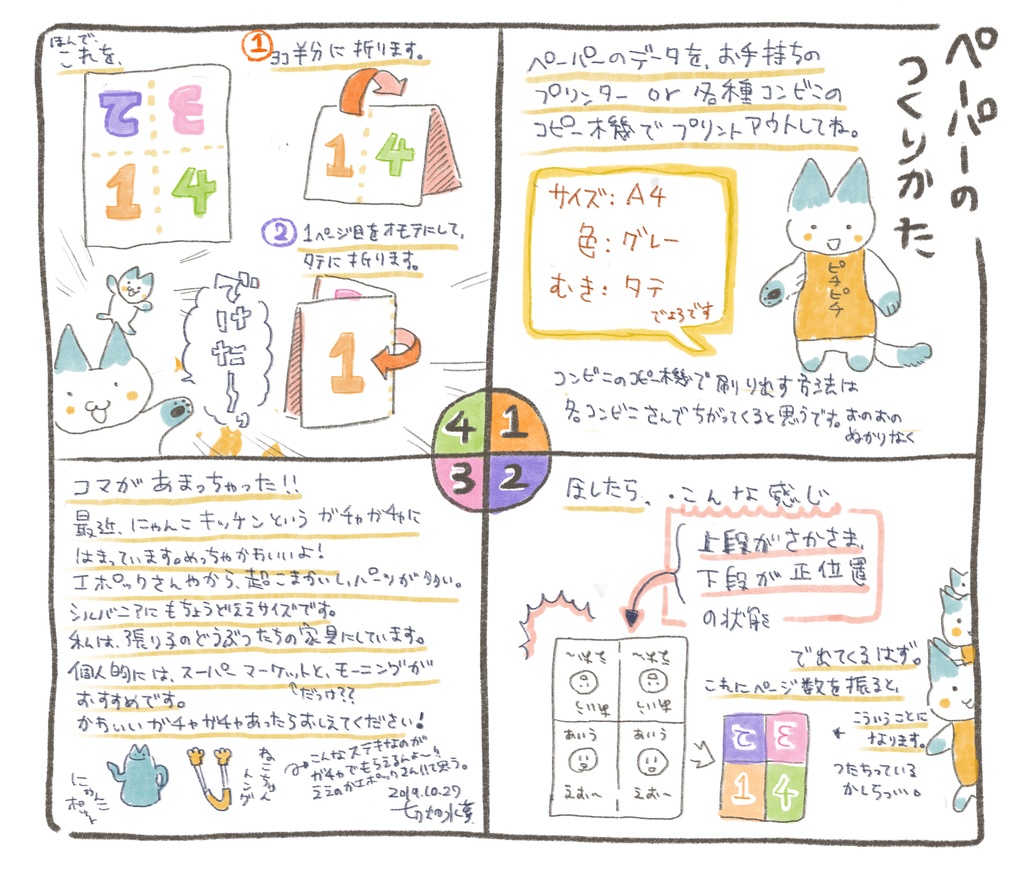 ペーパーの
つくりかた
ペーパーのデータを、お手持ちの
プリンター or 各種コンビニの
コピー機でプリントアウトしてね。
サイズ: A4
色: グレー
むき: タテ
でょうです
ピチピチ
コンビニのコピー機で刷り出す方法は
各コンビニさんでちがってくると思うです。おのおの
ぬかりなく
1
2
3
4
ほしたら、・こんな感じ
上段がさかさま、
下段が正位置
の状態
で出てくるはず。
これにページ数を振ると、
こういうことに
なります。
つたわっている
かしらっ…。
あいう
えお〜
あいう
えお〜
2 3
1 4
コマがあまっちゃった!!
最近、にゃんこキッチンという ガチャガチャに
はまっています。めっちゃかわいいよ!
エポックさんやから、超こまかいしパーツが多い。
シルバニアにもちょうどええサイズです。
私は、張り子のどうぶつたちの家具にしています。
個人的には、スーパーマーケットと、モーニングが
↑だっけ??
おすすめです。
かわいいガチャガチャあったらおしえてください!
にゃんこ
ポット
ねこちゃん
トング
こんなステキなのが
ガチャでもらえるんよ〜!!
ええのかエポックさん!!て思う。
2019.10.27
ほんで、
これを、
2 3
1 4
① ヨコ半分に折ります。
1 4
② 1ページ目をオモテにして、
タテに折ります。
1
できた〜っ